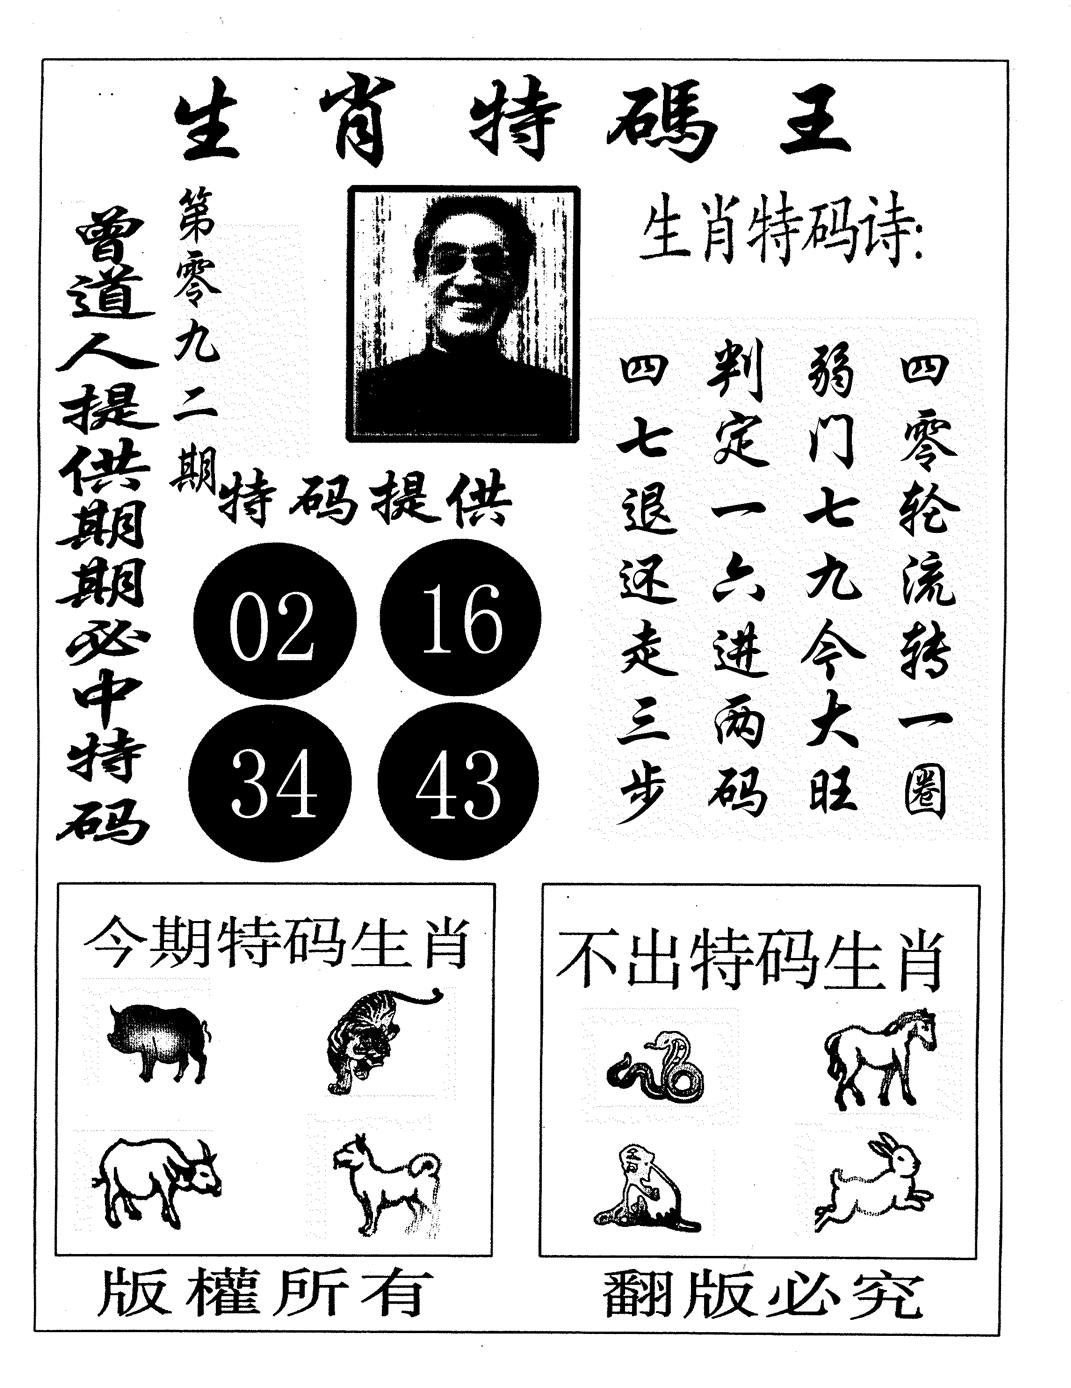 生肖特碼王
曾道人提供期期必中特码
第零九二期
生肖特码诗:
四零轮流转一圈
弱门七九今大旺
判定一六进两码
四七退还走三步
特码提供
02 16
34 43
今期特码生肖
不出特码生肖
版權所有
翻版必究